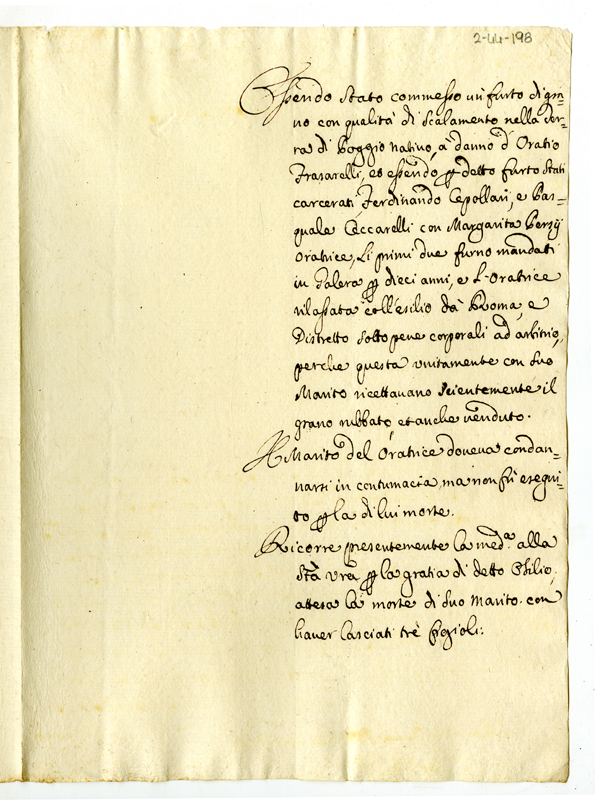 2-44-198
Essendo stato commesso un furto di gra=
no con qualità di scalamento nella Ter=
ra di Poggio nativo, à danno d'Oratio
Frasarelli, et essendo p detto furto stati
carcerati Ferdinando Cepollari, e Pas=
quale Ceccarelli con Margarita Persij
Oratrice, Li primi due furno mandati
in Galera p dieci anni, e L'Oratrice
rilassata coll'esilio da Roma, e
Distretto sotto pene corporali ad arbitrio,
perche questa unitamente con suo
Marito ricettavano scientemente il
grano rubbato, et anche venduto.
Il Marito del Oratrice doveva condan=
narsi in contumacia, ma non fù esegui=
to p la di lui morte.
Ricorre presentemente la med.ª alla
Stà Vrã p la gratia di detto Esilio
attesa la morte di suo Marito, con
haver lasciati trè figioli: